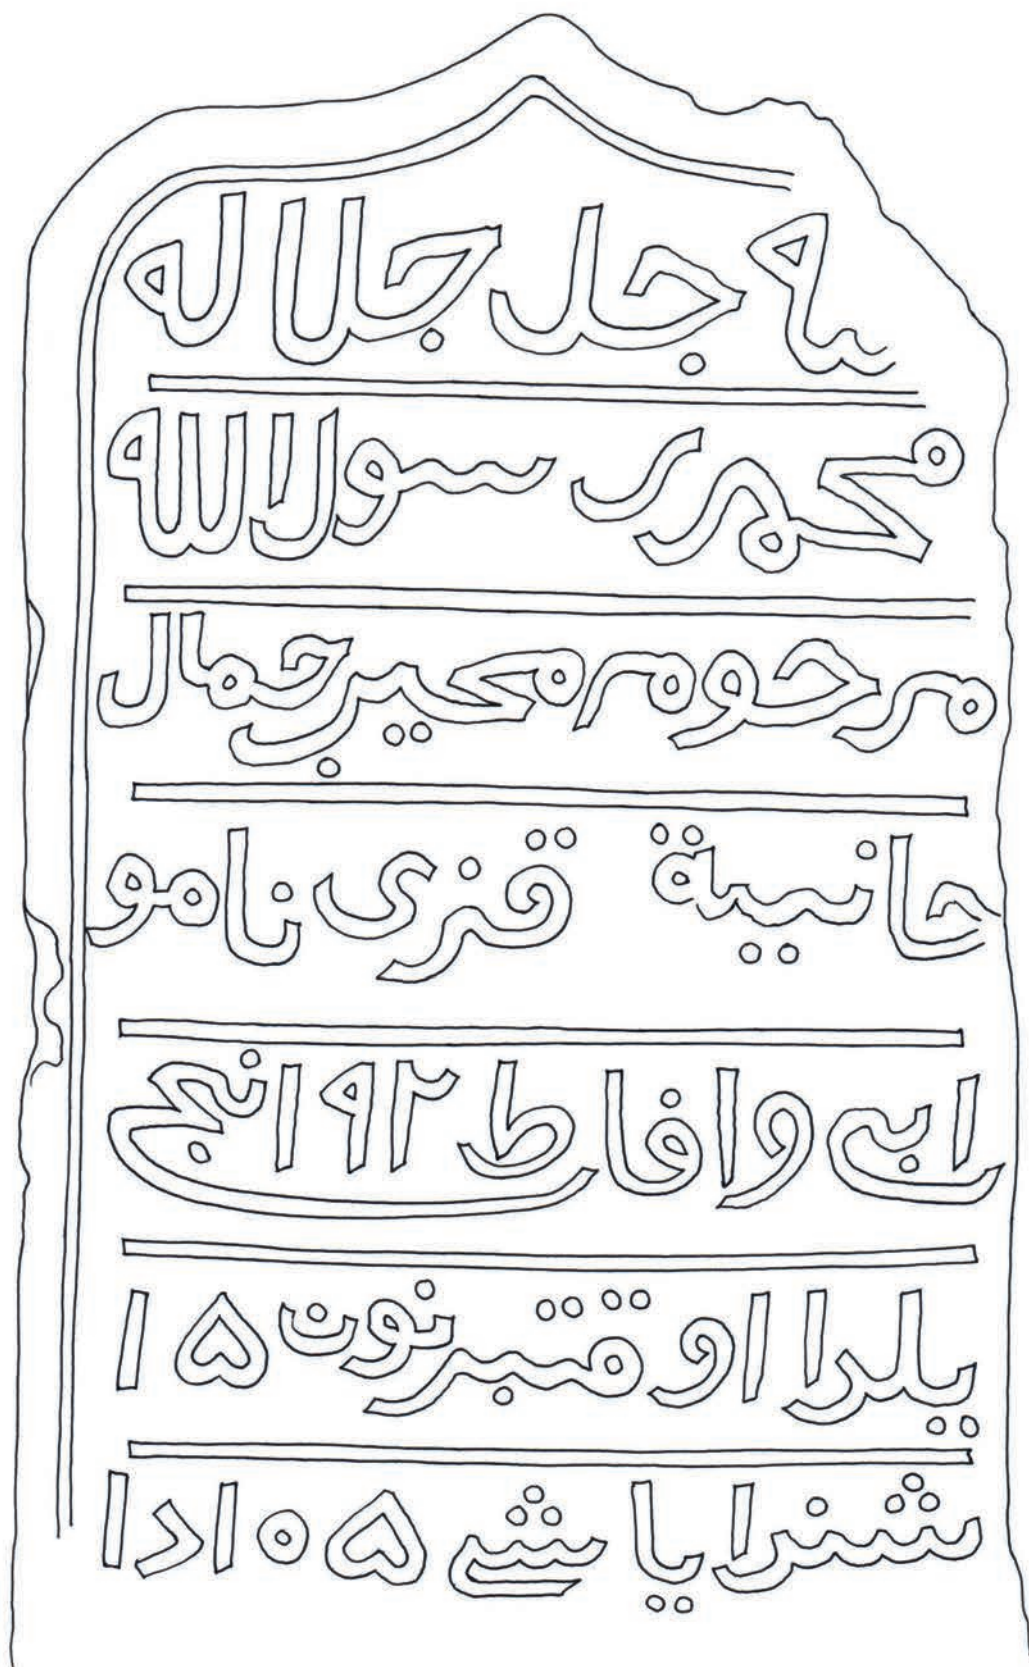 جل جلاله
محمد رسول الله
مرحوم محير جمال
حانية قزى نامو
ابي وافاط ٩٢ انجي
يلدا اوقتبرنون ١٥
شندا ياشي ٠٥ ادا